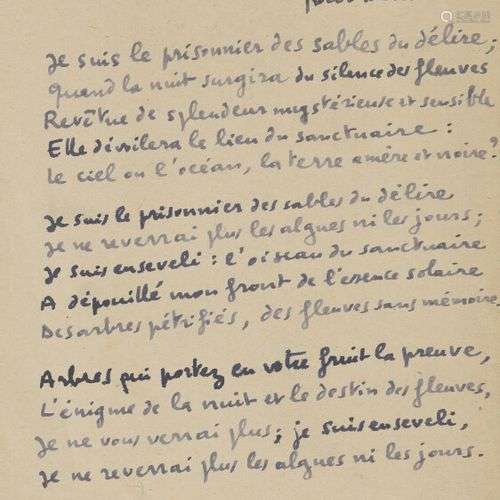 Je suis le prisonnier des sables du délire ;
Quand la nuit surgira du silence des fleuves
Revêtue de splendeur mystérieuse et sensible
Elle dévoilera le lieu du sanctuaire :
Le ciel ou l'océan, la terre amère et noire ?
Je suis le prisonnier des sables du délire
Je ne reverrai plus les algues ni les jours ;
Je suis enseveli : l'oiseau du sanctuaire
A dépouillé mon front de l'essence solaire
Des arbres pétrifiés, des fleuves sans mémoire
Arbres qui portez en votre fruit la preuve,
L'énigme de la nuit et le destin des fleuves,
Je ne vous verrai plus ; je suis enseveli,
Je ne reverrai plus les algues ni les jours.